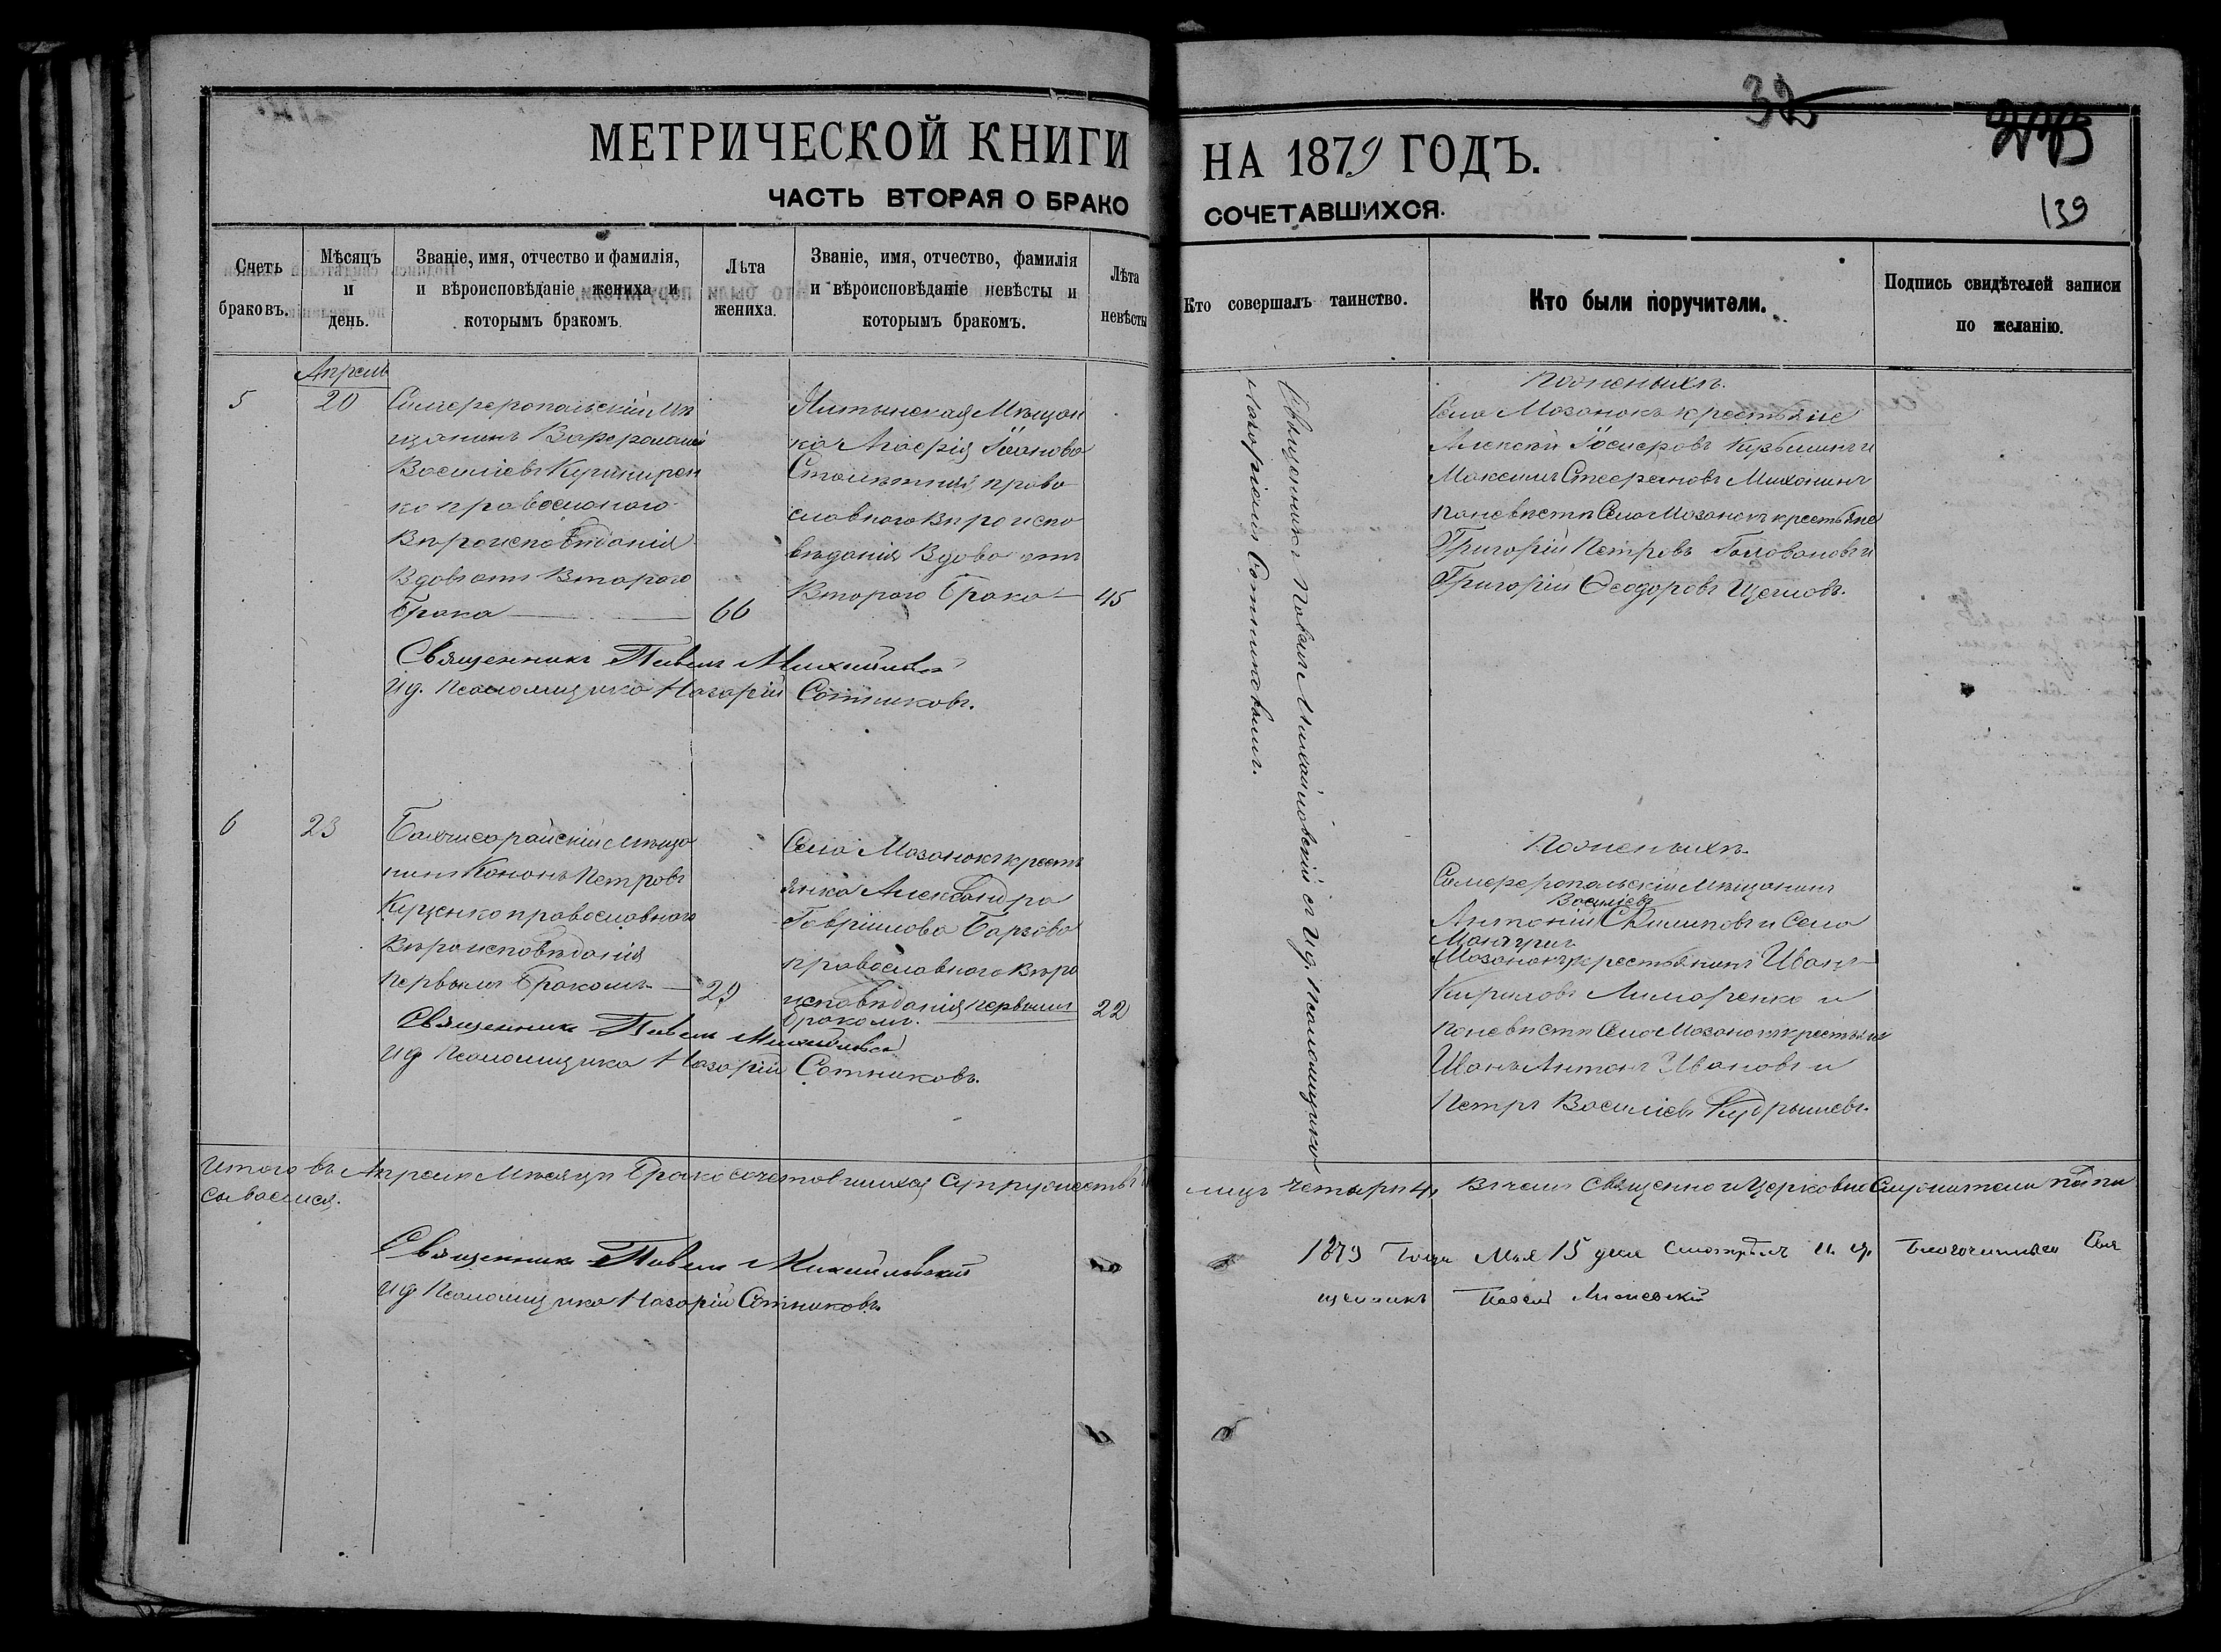 32
139
МЕТРИЧЕСКОЙ КНИГИ НА 1879 ГОДЪ.
ЧАСТЬ ВТОРАЯ О БРАКОСОЧЕТАВШИХСЯ.
Счетъ браковъ.
Мѣсяцъ и день.
Званіе, имя, отчество и фамилія, и вѣроисповѣданіе жениха и которымъ бракомъ.
Лѣта жениха.
Званіе, имя, отчество, фамилія и вѣроисповѣданіе невѣсты и которымъ бракомъ.
Лѣта невѣсты
Кто совершалъ таинство.
Кто были поручители.
Подпись свидѣтелей записи по желанію.
Апрель
5
20
Симферопольскій Мѣ
щанинъ Варфоломей
Василіевъ
ко православнаго
Вѣроисповѣданія
Вдовъ отъ Втораго
Брака
66
Ялтынская Мѣщан
ка Іоанова
право
славнаго Вѣроиспо
вѣданія Вдова отъ
Втораго Брака
45
Священникъ Павелъ Михайловскій съ И.д. псаломщика
Назаріемъ Сотниковымъ.
По женихѣ.
Села Мазанокъ крестьяне
Алексѣй Кузьминъ и
Максимъ Стефановъ
по невѣстѣ Села Мазанокъ крестьяне
Григорій Петровъ Головановъ и
Григорій Ѳеодоровъ Щегловъ.
Священникъ Павелъ Михайловскій
И.д. Псаломщика Назарій Сотниковъ.
6
23
Бахчисарайскій Мѣща
нинъ Кононъ Петровъ
Куценко православнаго
Вѣроисповѣданія
первымъ Бракомъ
29
Села Мазанокъ кресть
янка Александра
Гаврішлова
православнаго Вѣро
исповѣданія первымъ
бракомъ.
22
По женихѣ.
Симферопольскій Мѣщанинъ
Василіевъ
Антоній Филиповъ и Села
Мангушъ
Мазанокъ крестьянинъ Иванъ
Кириловъ Лимаренко и
по невѣстѣ Села Мазанокъ крестьяне
Иванъ Антонъ Ивановъ и
Петръ Василіевъ Кудряшевъ.
Священникъ Павелъ Михайловскій
И.д. Псаломщика Назарій Сотниковъ.
Итого въ Апрелѣ Мѣсяцѣ Бракосочетавшихся Супружествъ
лицъ четыри 4, Въ чемъ Священно и Церковно Служители подпи
сываемся.
Священникъ Павелъ Михайловскій
И.д. Псаломщика Назарій Сотниковъ
1879 Года Мая 15 дня Смотрѣлъ И. д. Благочиннаго Свя
щенникъ